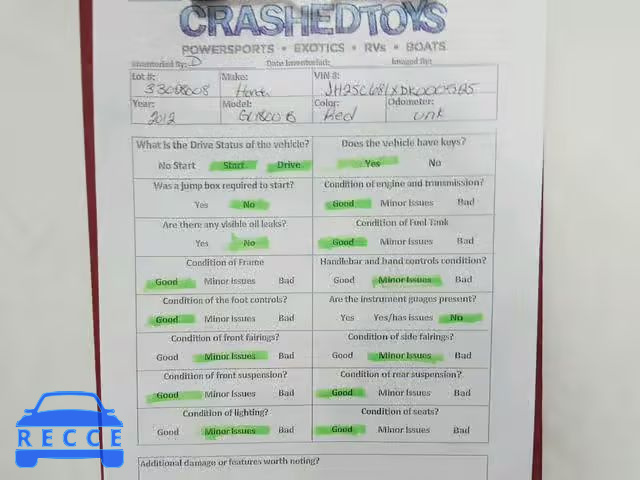 CRASHEDTOYS
POWERSPORTS • EXOTICS • RVs • BOATS
Inventoried By: D Date Inventoried: Imaged By:
Lot #: Make: VIN #:
Honda
Year: Model: Color: Odometer:
2012 Red unk
What is the Drive Status of the vehicle? Does the vehicle have keys?
No Start Start Drive Yes No
Was a jump box required to start? Condition of engine and transmission?
Yes No Good Minor Issues Bad
Are there any visible oil leaks? Condition of Fuel Tank
Yes No Good Minor Issues Bad
Condition of Frame Handlebar and hand controls condition?
Good Minor Issues Bad Good Minor Issues Bad
Condition of the foot controls? Are the instrument guages present?
Good Minor Issues Bad Yes Yes/has issues No
Condition of front fairings? Condition of side fairings?
Good Minor Issues Bad Good Minor Issues Bad
Condition of front suspension? Condition of rear suspension?
Good Minor Issues Bad Good Minor Issues Bad
Condition of lighting? Condition of seats?
Good Minor Issues Bad Good Minor Issues Bad
Additional damage or features worth noting?
RECCE